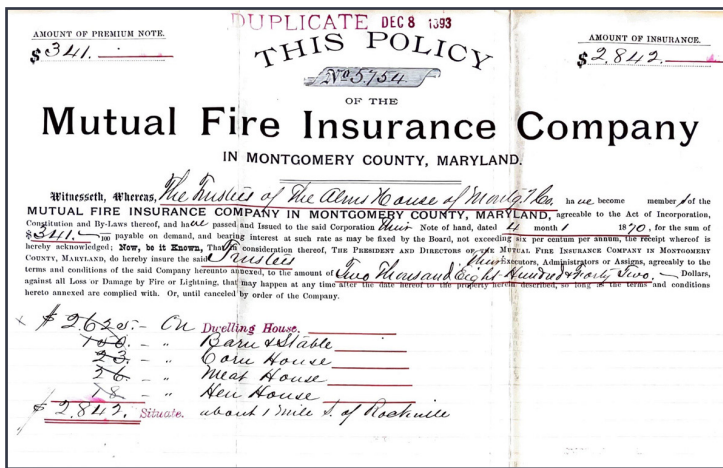 DUPLICATE DEC 8 1893
AMOUNT OF PREMIUM NOTE.
$341.
AMOUNT OF INSURANCE.
$2,842.
THIS POLICY
No 5754
OF THE
Mutual Fire Insurance Company
IN MONTGOMERY COUNTY, MARYLAND.
Witnesseth, Whereas, The Trustees of The Alms House of Montg'y Co. have become members of the
MUTUAL FIRE INSURANCE COMPANY IN MONTGOMERY COUNTY, MARYLAND, agreeable to the Act of Incorporation,
Constitution and By-Laws thereof, and have passed and Issued to the said Corporation their Note of hand, dated 4 month 1 1870, for the sum of
$341.–/100 payable on demand, and bearing interest at such rate as may be fixed by the Board, not exceeding six per centum per annum, the receipt whereof is
hereby acknowledged; Now, be it Known, That in consideration thereof, THE PRESIDENT AND DIRECTORS OF THE MUTUAL FIRE INSURANCE COMPANY IN MONTGOMERY
COUNTY, MARYLAND, do hereby insure the said Trustees their Executors, Administrators or Assigns, agreeably to the
terms and conditions of the said Company hereunto annexed, to the amount of Two Thousand Eight Hundred & Forty Two. – Dollars,
against all Loss or Damage by Fire or Lightning, that may happen at any time after the date hereof to the property herein described, so long as the terms and conditions
hereto annexed are complied with. Or, until canceled by order of the Company.
$2625.– On Dwelling House.
– " Barn & Stable
23. – " Corn House
– " Meat House
18 – " Hen House
$2,842. Situate. about 1 mile S. of Rockville